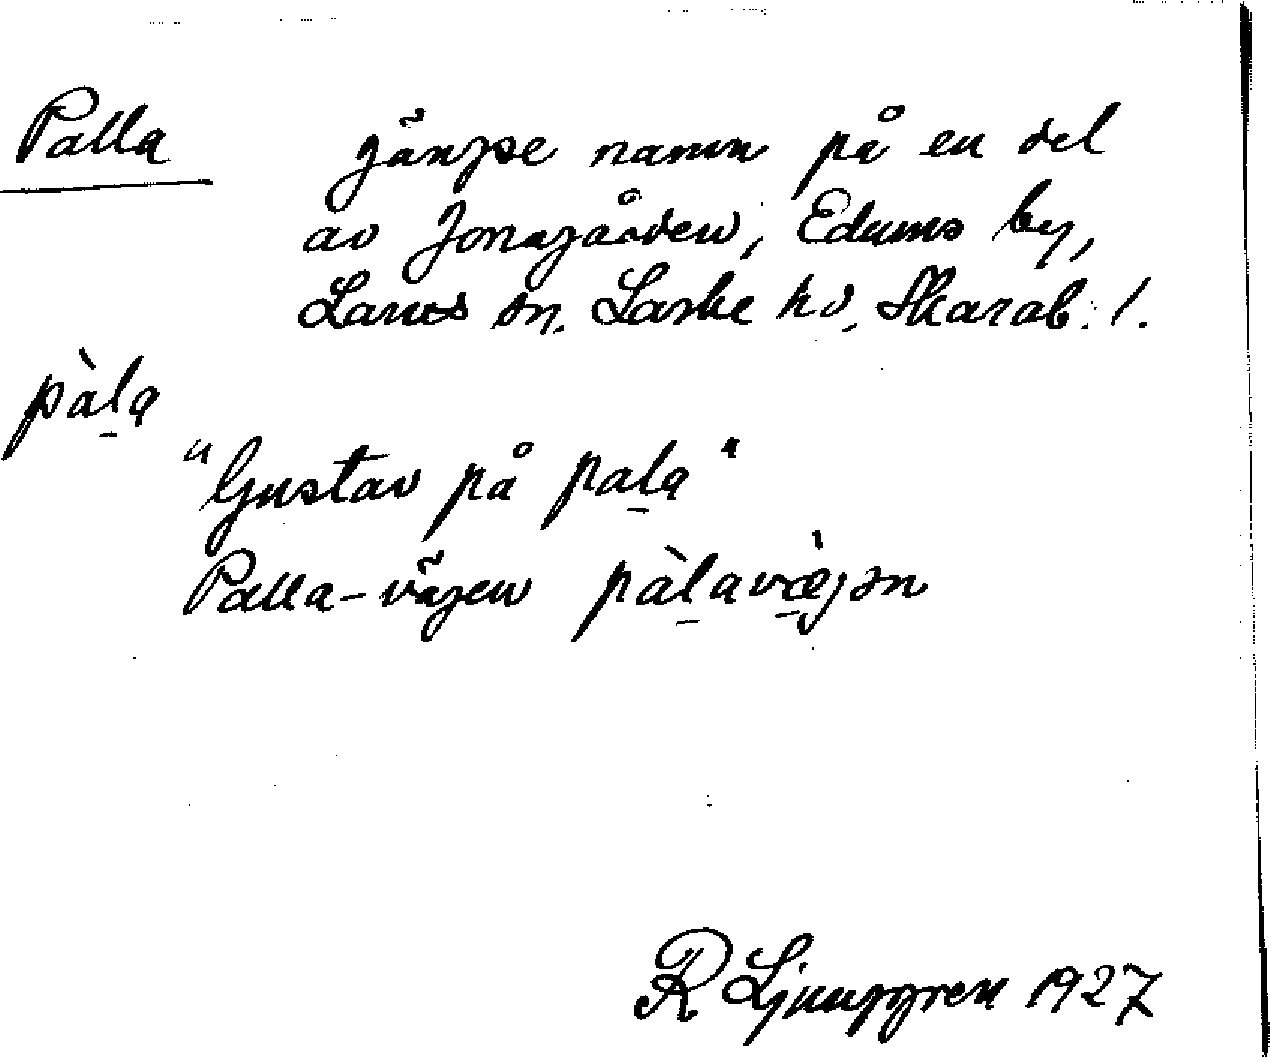 Palla gängse namn på en del
av Jonsgården, Edums by,
Larvs sn. Laske hd, Skarab. l.
pàl̠a
"Gustav på pal̠a"
Palla-vägen pàl̠avæ̠̀jən
R Ljunggren 1927